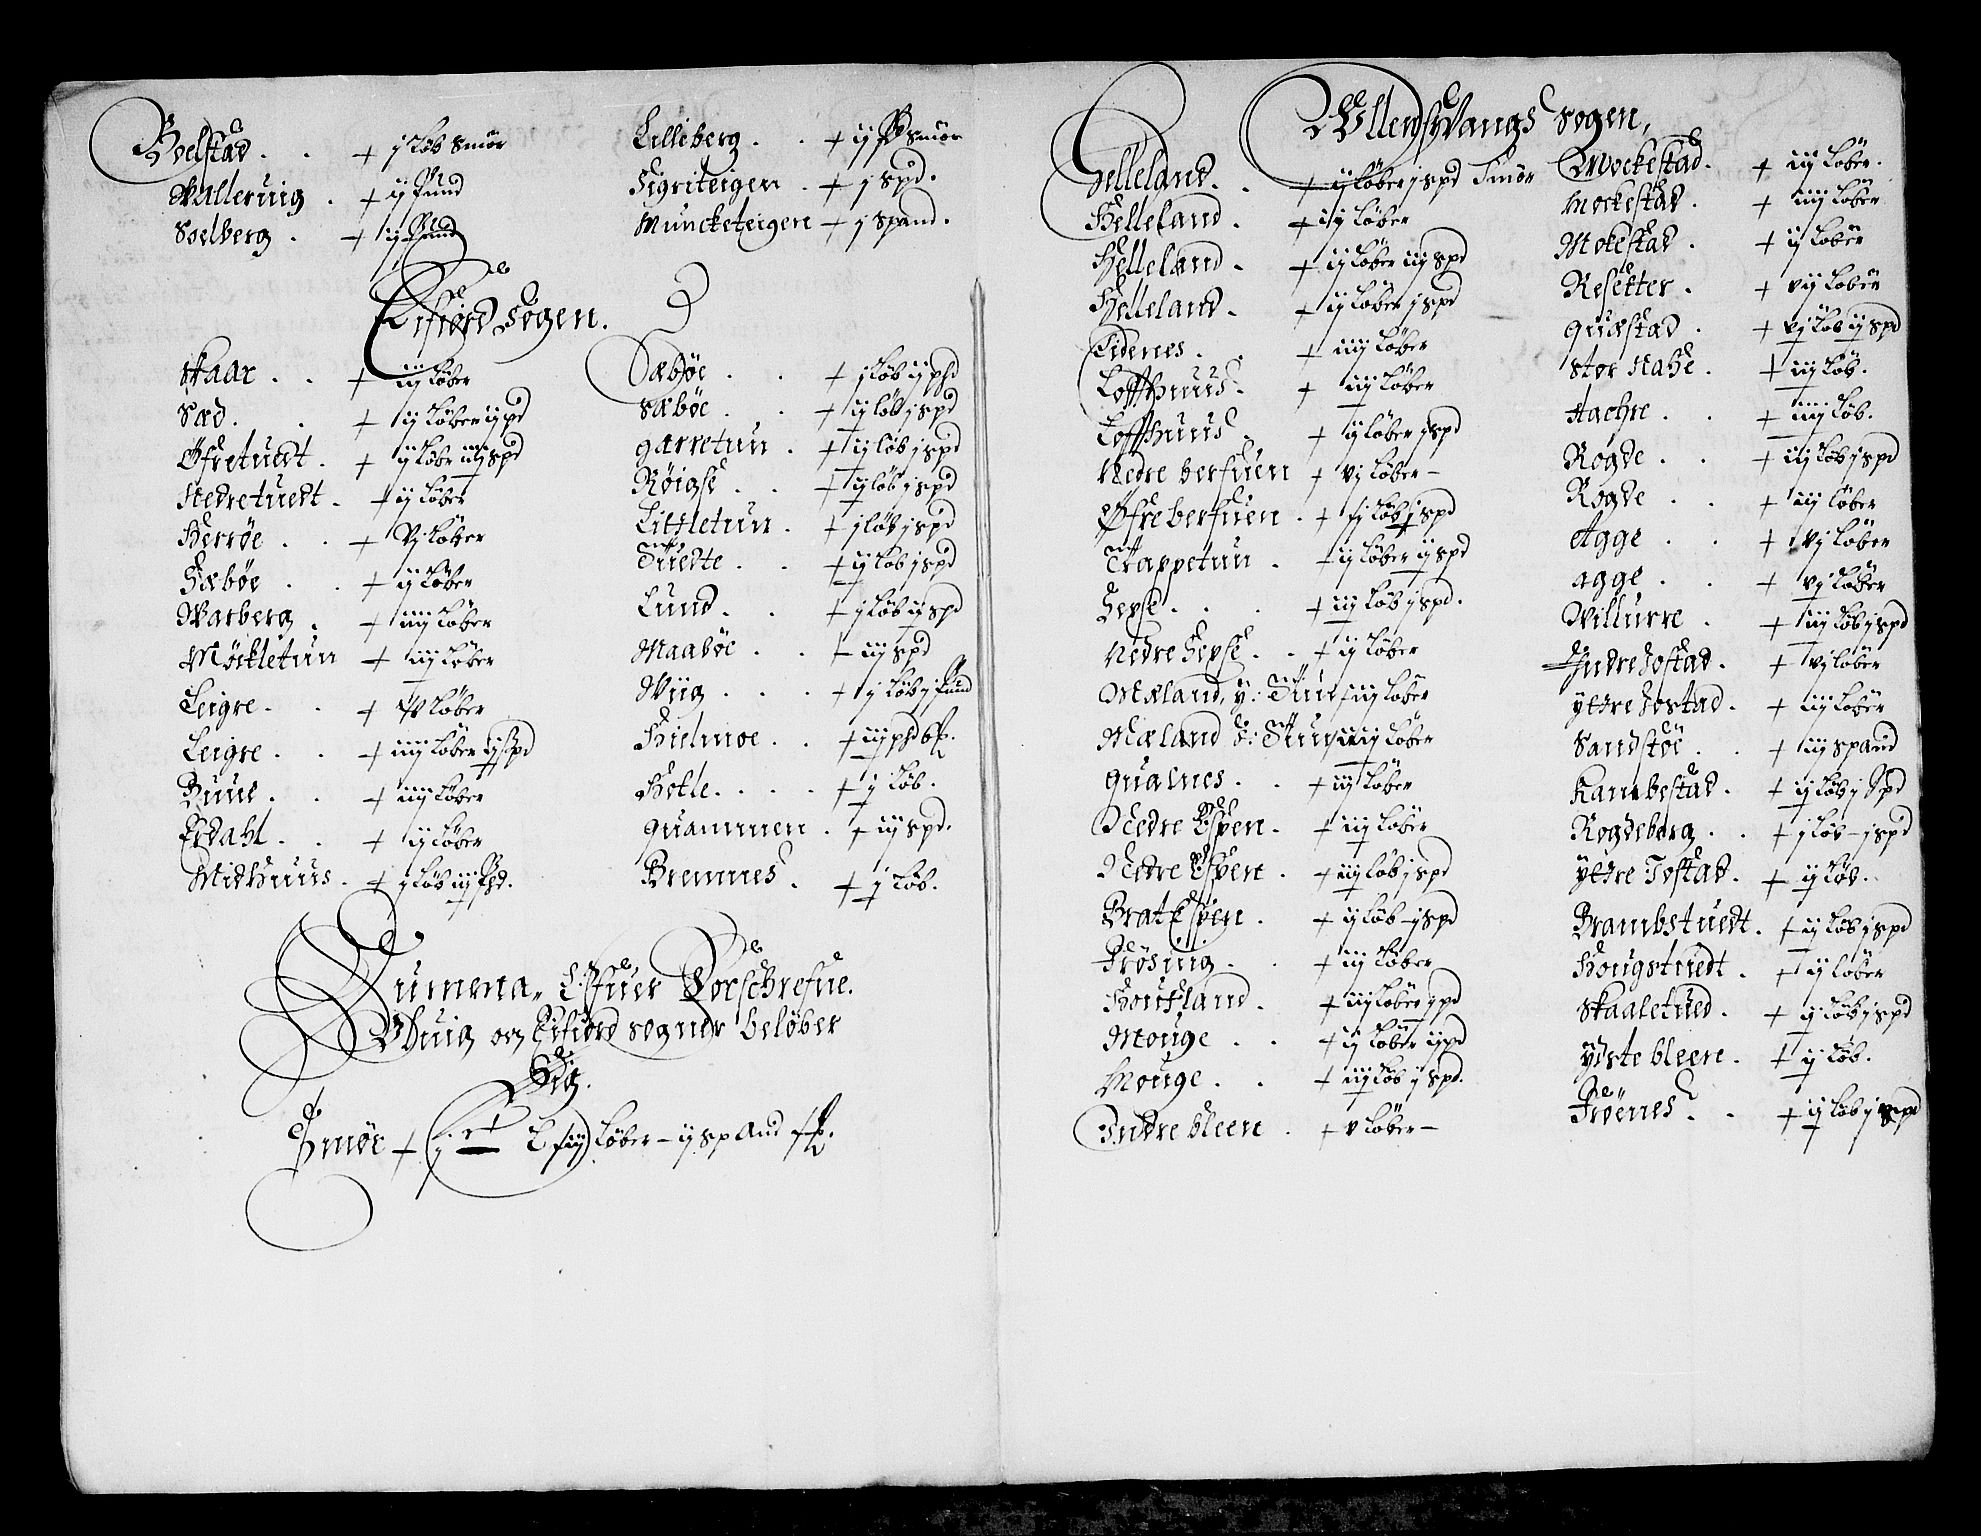 Boelstad . . + j løb smør
Valleruig . + ij Pund
Soelberg . + ij Pund
Lilleberg . . + ij Pd smør
Sigriteigen . + j spd.
Munckteigen + j spand.
Eifiord Sogen.
Skaar . . + iij løber
Sæd . . + ij løber ij pd
Øfretuedt . + ij løber iij spd
Nedretuedt . + ij løber
Herrøe . . + vj løber
Sæbøe . . + ij løber
Warberg . + iiij løber
Møckletun + iij løber
Leigre . . + v løber
Leigre . . + iiij løber ij spd
Buue . . + iiij løber
Erdahl . . + ij løber
Midhuus . + j løb iij Pd.
Sæbøe . . + j løb ij pd
Sæbøe . . + ij løb j spd
Garretun . + ij løb j spd
Røigse . . + ij løb j spd
Littletun . + j løb j spd
Tuedte . . + ij løb j spd
Lund . . + j løb ij spd
Maabøe . . + iij spd
Wiig . . . + j løb j Pund
Hielmoe . . + iij pd
Hotle . . . . + j løb.
Quammen . + ij spd.
Bremnes . + j løb.
Summa
Vuig og Eifiord sogner beløber
Sig.
Smør + løber - ij spand
Ullendsvangs Sogen,
Helleland . . + ij løber j spd Smør
Helleland . + iij løber
Helleland . + ij løber ij spd
Helleland . + ij løber j spd
Eidenes . . + iiij løber
Loffthuus . + iij løber
Loffthuus . + ij løber j spd
Nedre berfuen + vj løber -
Øfre berfuen . + ij løb j spd
Trappetun . + ij løber ij spd
Hepse . . . + iij løb j spd.
Nedre Hepse . . + ij løber
Mæland, y: Tun + iij løber
Mæland Tun iiij løber
Qualnes . . + iij løber
Nedre Espen . + iij løber
Nedre Espen . + iij løb j spd
Brat Espen . + ij løb - j spd
Frøsuig . . + iij løber
Houfland . + iij løber j spd
Mouge . . + ij løber ij pd
Mouge . . + iij løb j spd.
Indre bleen . + v løber -
Mockestad . + iij løber.
Mockestad . + iiij løber
Mokestad . + ij løber
Resetter . + vij løber
Quæstad . + vj løb ij spd
Stor Nahe . + iij løb.
Naehre . . + iiij løb.
Rogde . . + iij løb j spd
Rogde . . + iij løber
Agge . . + vj løber
agge . . + vj løber
Villurre . + iij løb j spd
Indre Jostad . + vj løber
ytre Jostad . + iij løber
Sandstøe . . + iij spand
Kambestad . + ij løb j Spd
Rogdeberg . . + j løb - j spd
ytre Jostad . + ij løb.
Brambstuedt . + ij løb j spd
Hougstuedt . + ij løber
Skaaletued . + ij løb j spd
ydste bleen . + ij løb.
Frøenes . . + ij løb j spd